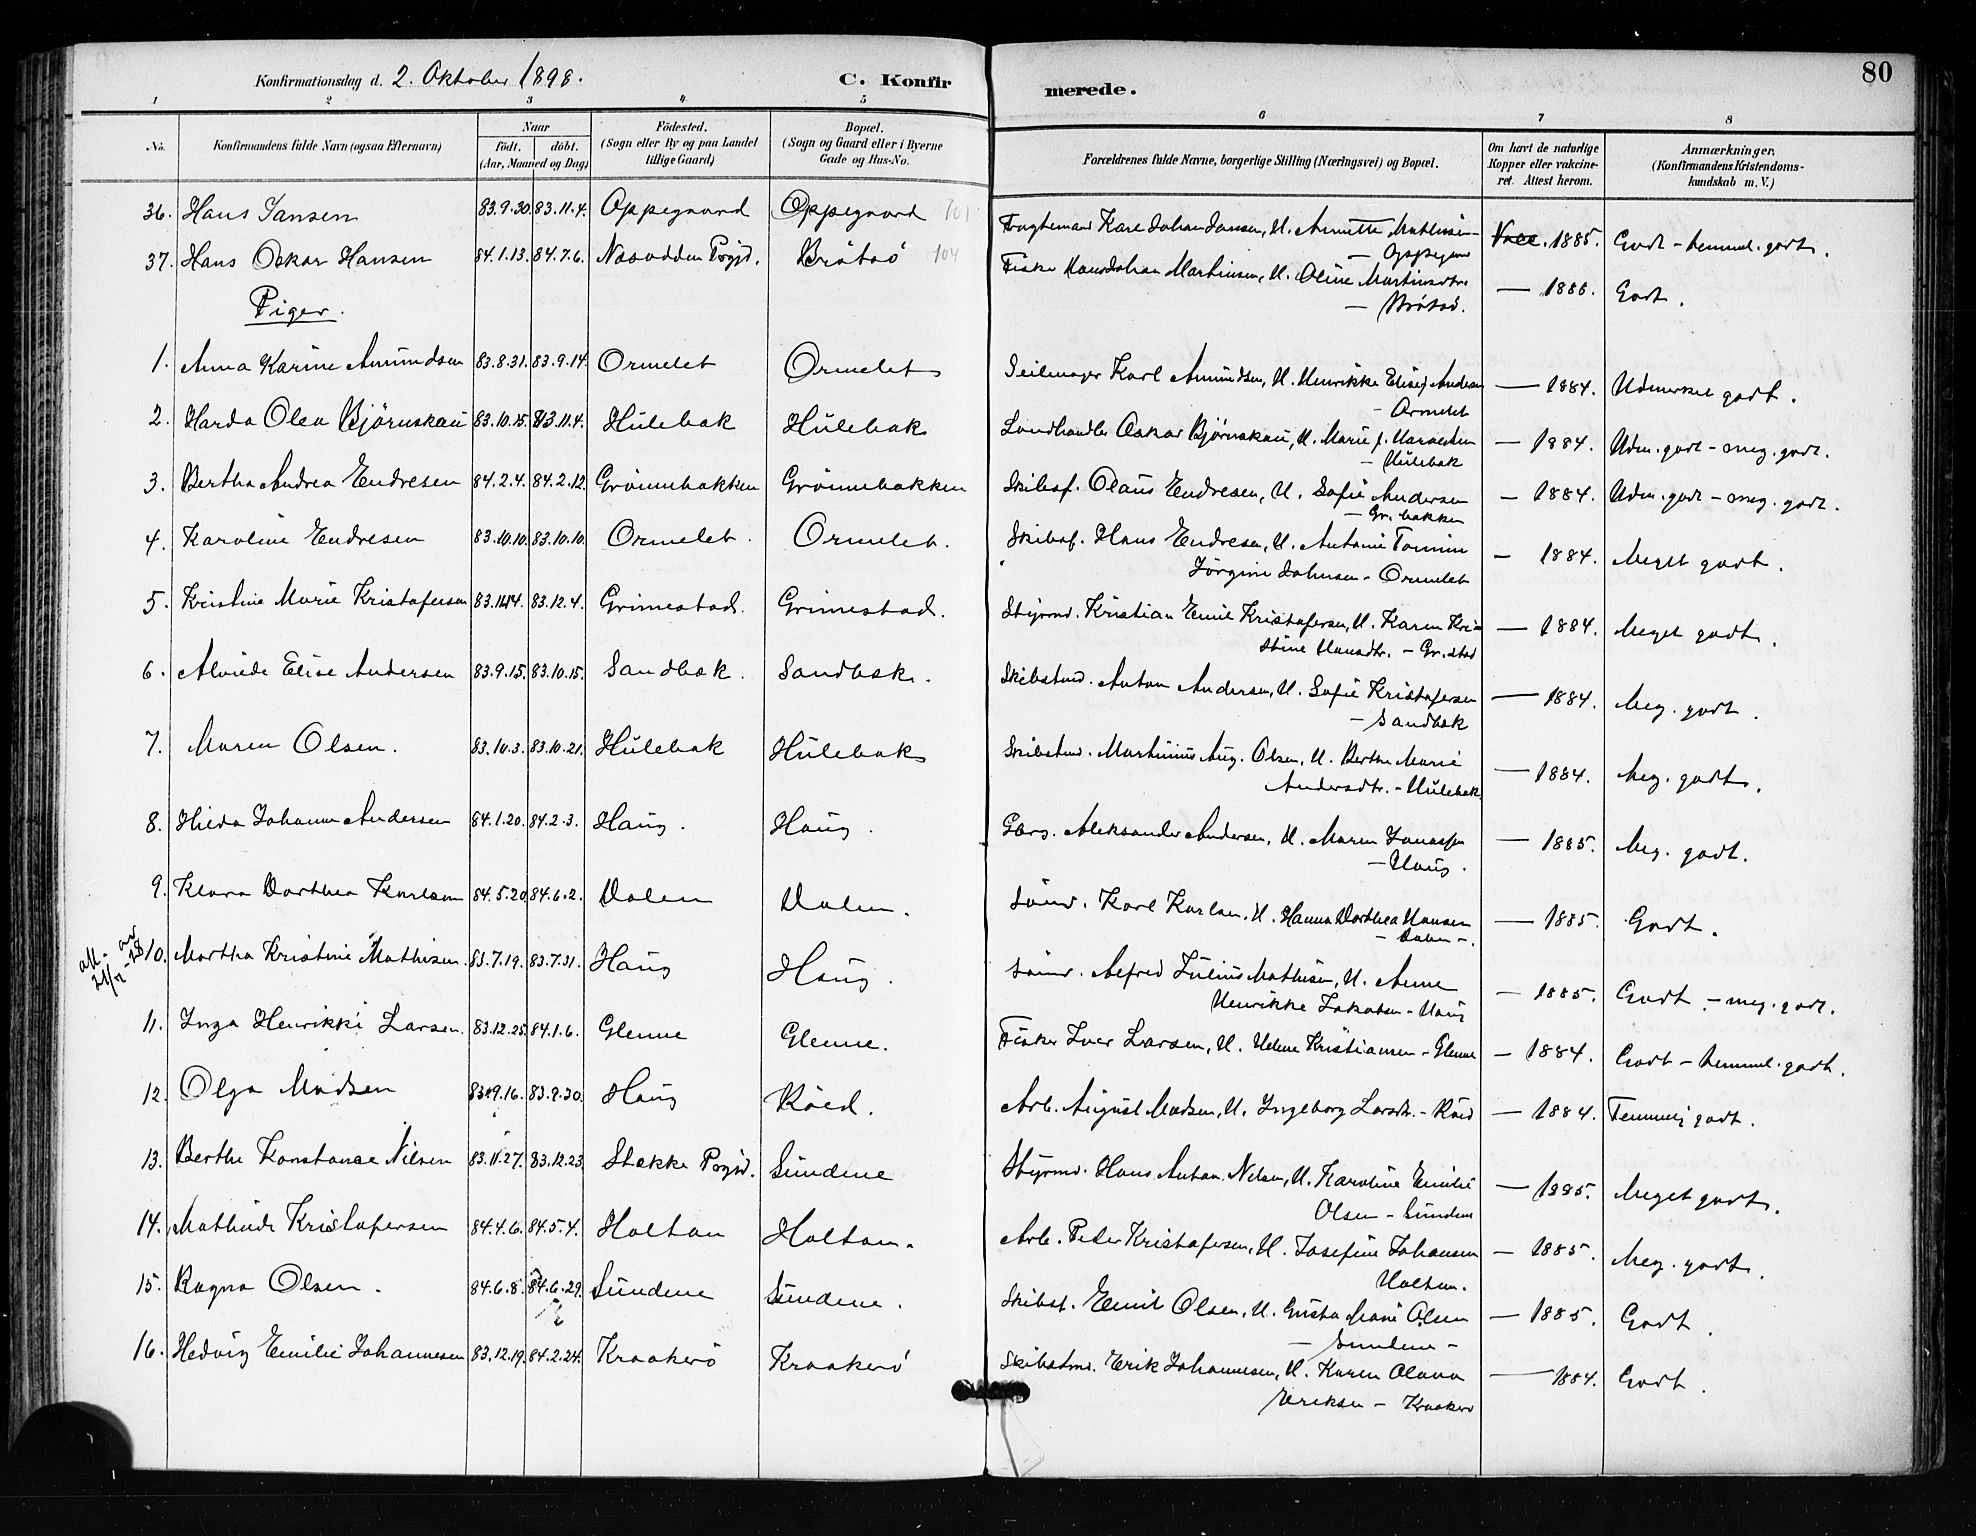 Konfirmationsdag d. 2. Oktober 1898.
C. Konfirmerede.
80
1 2 3 4 5 6 7 8
No.
Konfirmandens fulde Navn (ogsaa Efternavn)
Naar
födt. döbt.
(Aar, Maaned og Dag)
Födested.
(Sogn eller By og paa Landet tillige Gaard)
Bopæl.
(Sogn og Gaard eller i Byerne Gade og Hus-No.
Forældrenes fulde Navne, borgerlige Stilling (Næringsvei) og Bopæl.
Om havt de naturlige Kopper eller vakcineret. Attest herom.
Anmærkninger,
(Konfirmandens Kristendomskundskab m. V.)
36. Hans Jansen 83.9.30. 83.11.4. Oppegaard Oppegaard 101 Karl Johan Jansen, H. Annette Mathisen – Oppegaard 1885. Godt – temmel. godt.
37. Hans Oskar Hansen 84.1.13. 84.7.6. Næsodden Prgjd. Bråtsö 104 Fisker Hans Johan Martinsen, H. Oline Martinsdtr. – Bråtsö. — 1886. Godt.
Piger.
1. Anna Karine Amundsen 83.8.31. 83.9.14. Ormelet Ormelet Seilmager Karl Amundsen, H. Henrikke Elise Andersen – Ormelet — 1884. Udmerket godt.
2. Harda Olea Björnskau 83.10.15. 83.11.4. Hulebak Hulebak Landhandler Oskar Bjørnskau, H. Marie f. Haraldsen – Hulebak — 1884. Udm. godt – meg. godt.
3. Bertha Andrea Endresen 84.2.4. 84.2.12. Grönnebakken Grönnebakken Skibsf. Olaus Endresen, H. Sofie Andersen – Gr. bakken — 1884. Udm. godt – meg. godt.
4. Karoline Endresen 83.10.10. 83.10.10. Ormelet. Ormelet. Skibsf. Hans Endresen, H. Antonie Tomine Jörgine Johnsen – Ormelet — 1884. Meget godt.
5. Kristine Marie Kristofersen 83. 83.12.4. Grimestad. Grimestad. Styrmd. Kristian Emil Kristofersen, H. Karen Kristine Hansdtr. – Gr.stad — 1884. Meget godt.
6. Alvilde Elise Andersen 83.9.15. 83.10.15. Sandbæk. Sandbæk. Skibstmd. Anton Andersen, H. Sofie Kristofersen – Sandbæk — 1884. Meg. godt.
7. Maren Olsen. 83.10.3. 83.10.21. Hulebak Hulebak Skibstmd. Martinius Aug. Olsen, H. Berthe Marie Andersdtr. – Hulebak — 1884. Meg. godt.
8. Hilda Johanne Andersen 84.1.20. 84.2.3. Haug. Haug. Gbrg. Aleksander Andersen, H. Maren Jonassen – Haug. — 1885. Meg. godt.
9. Klara Dorthea Karlsen 84.5.20. 84.6.2. Dalen Dalen. Sömd. Karl Karlsen, H. Hanna Dorthea Hansen – Dalen –. — 1885. Godt.
10. Martha Kristine Mathisen. 83.7.19. 83.7.31. Haug Haug. Sömd. Alfred Julius Mathisen, H. Anne Henrikke Jakobsen – Haug — 1885. Godt – meg. godt.
11. Inga Henrikke Larsen. 83.12.25. 84.1.6. Glenne Glenne. Fisker Iver Larsen, H. Helene Kristiansen – Glenne — 1884. Godt – temmel. godt.
12. Olga Madsen 83.9.16. 83.9.30. Haug Röed. Arb. August Madsen, H. Ingeborg Larsdtr. – Röed — 1884. Temmelig godt.
13. Berthe Konstance Nilsen 83.11.27. 83.12.23. Stokke Prgjd. Sundene Styrmd. Hans Anton Nilsen, H. Karoline Emilie Olsen – Sundene — 1885. Meget godt.
14. Mathilde Kristofersen 84.4.6. 84.5.4. Holtan Holtan. Arb. Peter Kristofersen, H. Josefine Johansen Holtan. — 1885. Meg. godt.
15. Ragna Olsen. 84.6.8. 84.6.29. Sundene Sundene. Skibsf. Emil Olsen, H. Gusta Marie Olsen – Sundene – — 1885. Godt.
16. Hedvig Emilie Johannesen 83.12.19. 84.2.24. Kraakerö Kraakerö Skibstmd. Erik Johannesen, H. Karen Olava Eriksen – Kraakerö — 1884. Godt.